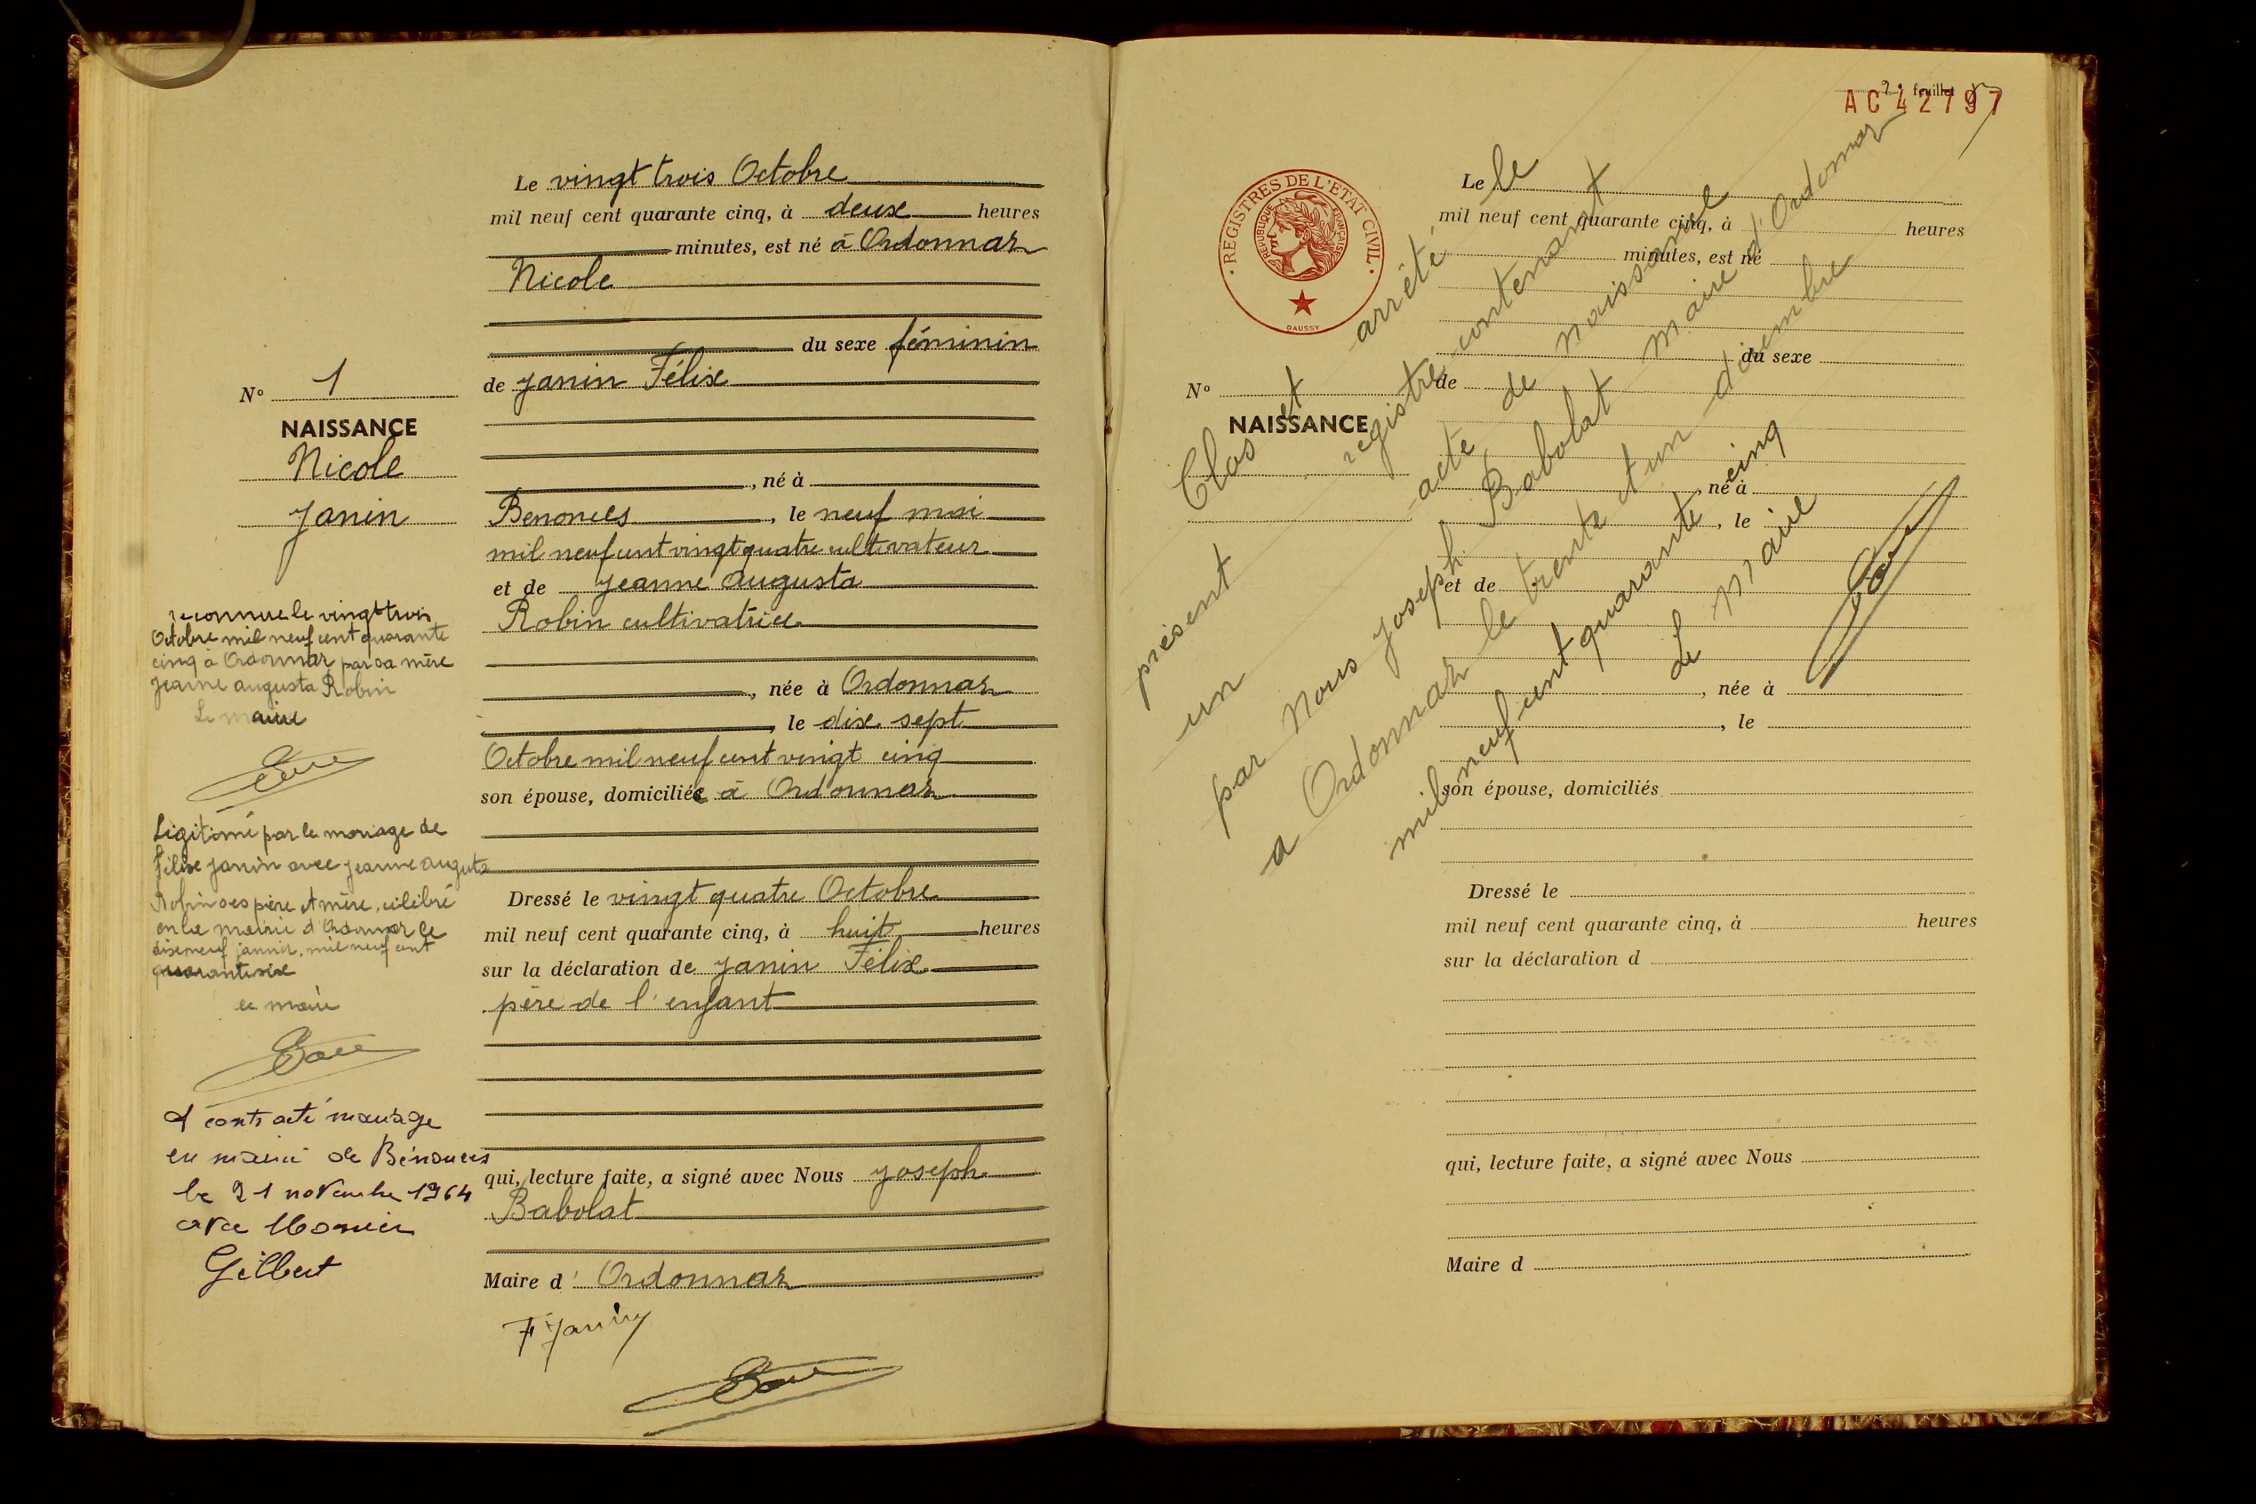 N° 1
NAISSANCE
Nicole
Janin
reconnue le vingt trois
Octobre mil neuf cent quarante
cinq à Ordonnaz par sa mère
Jeanne augusta Robin
Le maire
Légitimé par le mariage de
Félix Janin avec Jeanne augusta
Robin ses père et mère, célébré
en la mairie d'Ordonnaz le
dix neuf janvier, mil neuf cent
quarante six
Le maire
A contracté mariage
en mairie de Bénonces
le 21 novembre 1964
avec Monier
Gilbert
Le vingt trois Octobre
mil neuf cent quarante cinq, à deux heures
minutes, est né à Ordonnaz
Nicole
du sexe féminin
de Janin Félix
, né à
Benonces, le neuf mai
mil neuf cent vingt quatre cultivateur
et de Jeanne Augusta
Robin cultivatrice
, née à Ordonnaz
, le dix sept
Octobre mil neuf cent vingt cinq
son épouse, domiciliée à Ordonnaz
Dressé le vingt quatre Octobre
mil neuf cent quarante cinq, à huit heures
sur la déclaration de Janin Félix
père de l'enfant
qui, lecture faite, a signé avec Nous Joseph
Babolat
Maire d'Ordonnaz
F Janin
2e feuillet
AC 42797
REGISTRES DE L'ETAT CIVIL
REPUBLIQUE FRANÇAISE
DAUSSY
N°
NAISSANCE
Le
mil neuf cent quarante cinq, à heures
minutes, est né
du sexe
de
, né à
, le
et de
, née à
, le
son épouse, domiciliés
Dressé le
mil neuf cent quarante cinq, à heures
sur la déclaration d
qui, lecture faite, a signé avec Nous
Maire d
Clos et arrêté le
présent registre contenant
un acte de naissance
par Nous Joseph Babolat Maire d'Ordonnaz
a Ordonnaz le trente et un décembre
mil neuf cent quarante cinq
Le Maire